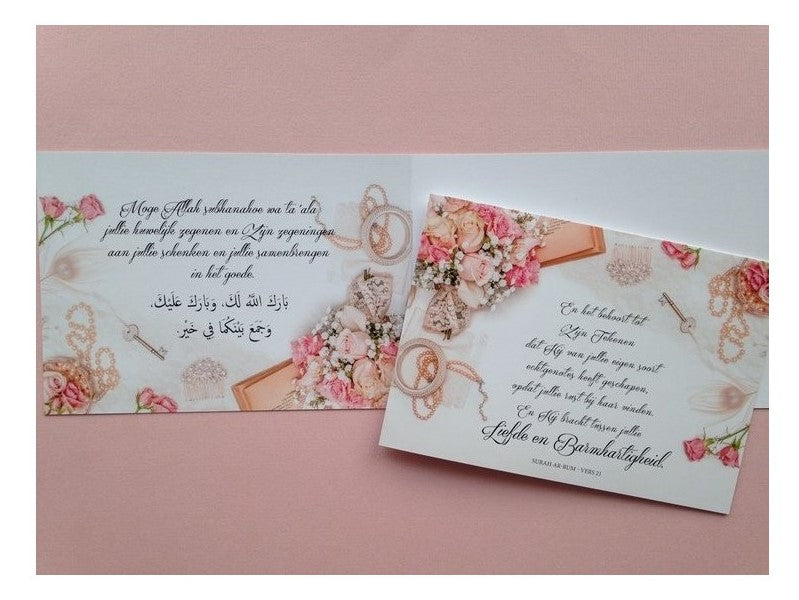 Moge Allah subhanahoe wa ta'ala
jullie huwelijk zegenen en Zijn zegeningen
aan jullie schenken en jullie samenbrengen
in het goede.
بَارَكَ اللَّهُ لَكَ، وَبَارَكَ عَلَيْكَ،
وَجَمَعَ بَيْنَكُمَا فِي خَيْرٍ.
En het behoort tot
Zijn Tekenen
dat Hij van jullie eigen soort
echtgenotes heeft geschapen,
opdat jullie rust bij haar vinden.
En Hij bracht tussen jullie
Liefde en Barmhartigheid.
SURAH AR-RUM - VERS 21